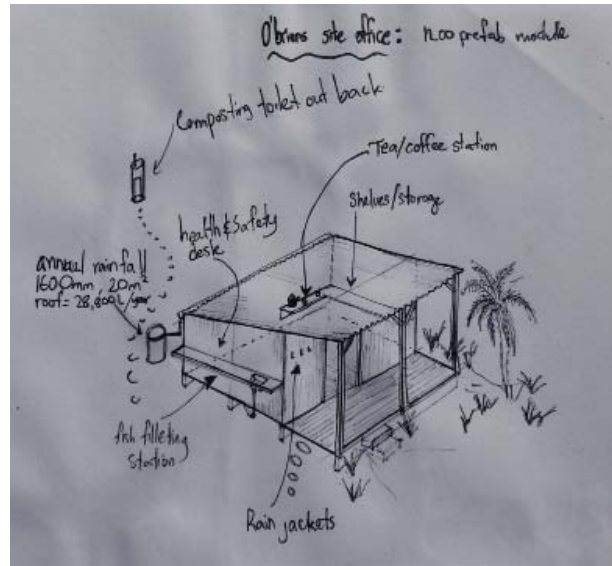 O'Briens site office: noo prefab module
Composting toilet out back
Tea/coffee station
Shelves/storage
health & Safety
desk
annual rainfall
1600mm, 20m²
roof = 28,800L/year
fish filleting
station
Rain jackets